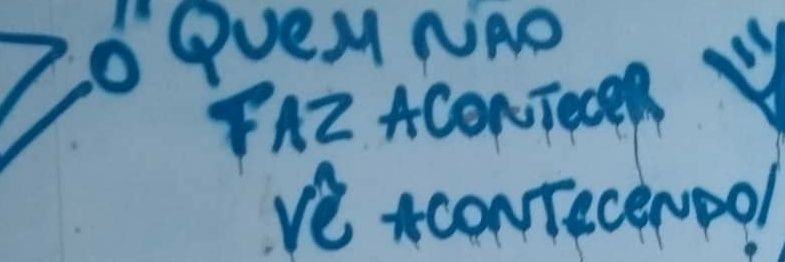 "QUEM NÃO
FAZ ACONTECER
VÊ ACONTECENDO!